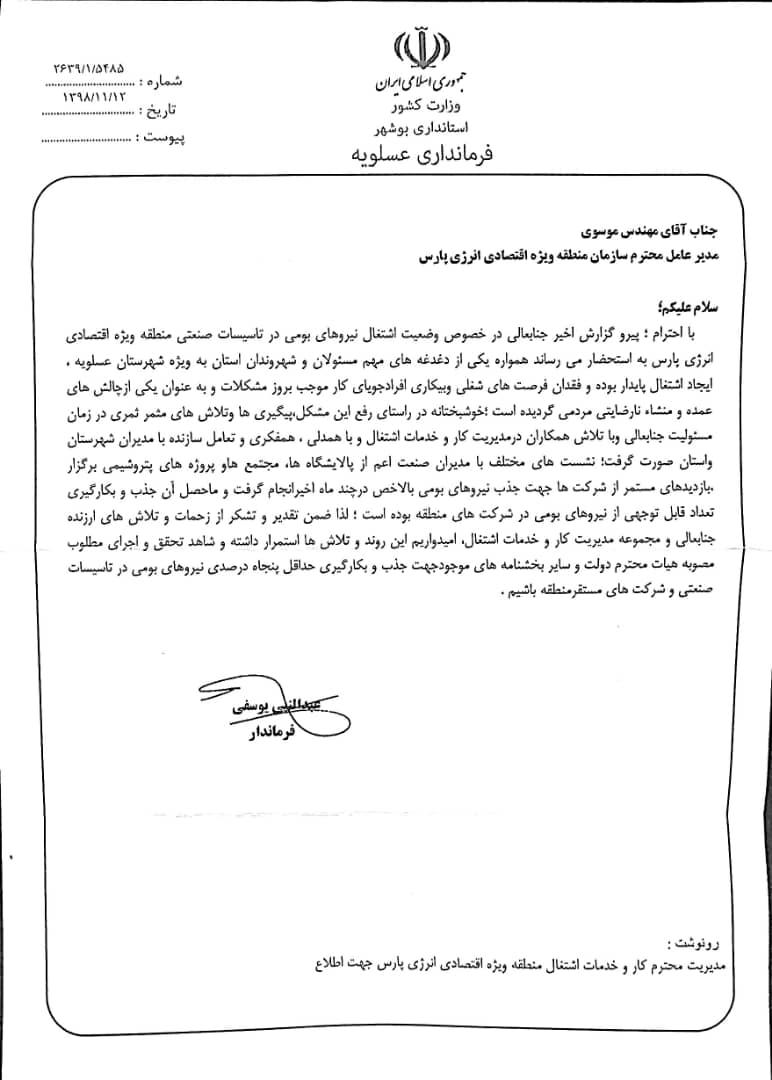 جمهوری اسلامی ایران
وزارت کشور
استانداری بوشهر
فرمانداری عسلویه
شماره : ۲۶۳۹/۱/۵۴۸۵
تاریخ : ۱۳۹۸/۱۱/۱۲
پیوست :
جناب آقای مهندس موسوی
مدیر عامل محترم سازمان منطقه ویژه اقتصادی انرژی پارس
سلام علیکم؛
با احترام ؛ پیرو گزارش اخیر جنابعالی در خصوص وضعیت اشتغال نیروهای بومی در تاسیسات صنعتی منطقه ویژه اقتصادی
انرژی پارس به استحضار می رساند همواره یکی از دغدغه های مهم مسئولان و شهروندان استان به ویژه شهرستان عسلویه ،
ایجاد اشتغال پایدار بوده و فقدان فرصت های شغلی وبیکاری افرادجویای کار موجب بروز مشکلات و به عنوان یکی ازچالش های
عمده و منشاء نارضایتی مردمی گردیده است ؛خوشبختانه در راستای رفع این مشکل،پیگیری ها وتلاش های مثمر ثمری در زمان
مسئولیت جنابعالی وبا تلاش همکاران درمدیریت کار و خدمات اشتغال و با همدلی ، همفکری و تعامل سازنده با مدیران شهرستان
واستان صورت گرفت؛ نشست های مختلف با مدیران صنعت اعم از پالایشگاه ها، مجتمع هاو پروژه های پتروشیمی برگزار
،بازدیدهای مستمر از شرکت ها جهت جذب نیروهای بومی بالاخص درچند ماه اخیرانجام گرفت و ماحصل آن جذب و بکارگیری
تعداد قابل توجهی از نیروهای بومی در شرکت های منطقه بوده است ؛ لذا ضمن تقدیر و تشکر از زحمات و تلاش های ارزنده
جنابعالی و مجموعه مدیریت کار و خدمات اشتغال، امیدواریم این روند و تلاش ها استمرار داشته و شاهد تحقق و اجرای مطلوب
مصوبه هیات محترم دولت و سایر بخشنامه های موجودجهت جذب و بکارگیری حداقل پنجاه درصدی نیروهای بومی در تاسیسات
صنعتی و شرکت های مستقرمنطقه باشیم .
عبدالنبی یوسفی
فرماندار
رونوشت :
مدیریت محترم کار و خدمات اشتغال منطقه ویژه اقتصادی انرژی پارس جهت اطلاع